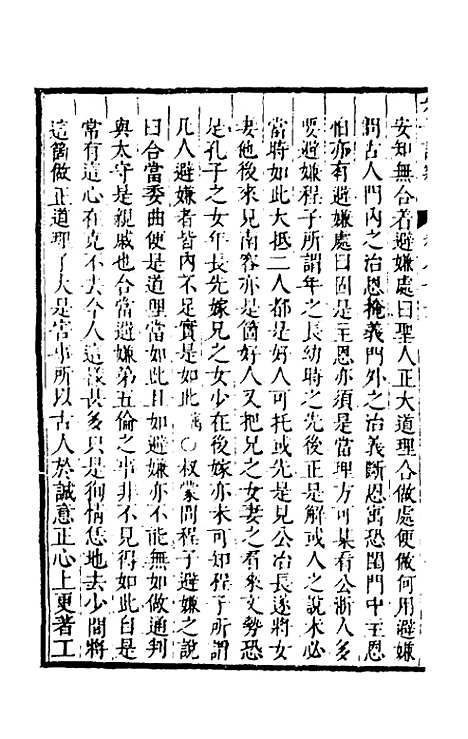 安知無合着避嫌處曰聖人正大道理合做處便做何用避嫌
問古人門内之治恩掩義門外之治義斷恩寓恐閨門中主恩
怕亦有避嫌處曰固是主恩亦須是當理方可某看公浙人多
要避嫌程子所謂年之長幼時之先後正是解或人之說未必
當時如此大抵二人都是好人可托或先是見公冶長遂將女
妻他後來見南容亦是箇好人又把兄之女妻之看來文勢恐
是孔子之女年長先嫁兄之女少在後嫁亦未可知程子所謂
凡人避嫌者皆内不足實是如此㝢〇叔蒙問程子避嫌之說
曰合當委曲便是道理當如此且如避嫌亦不能無如做通判
與太守是親戚也合當避嫌第五倫之事非不見得如此自是
常有這心在克不去今人這樣甚多只是徇情恁地去少間將
這箇做正道理了大是害事所以古人於誠意正心上更著工